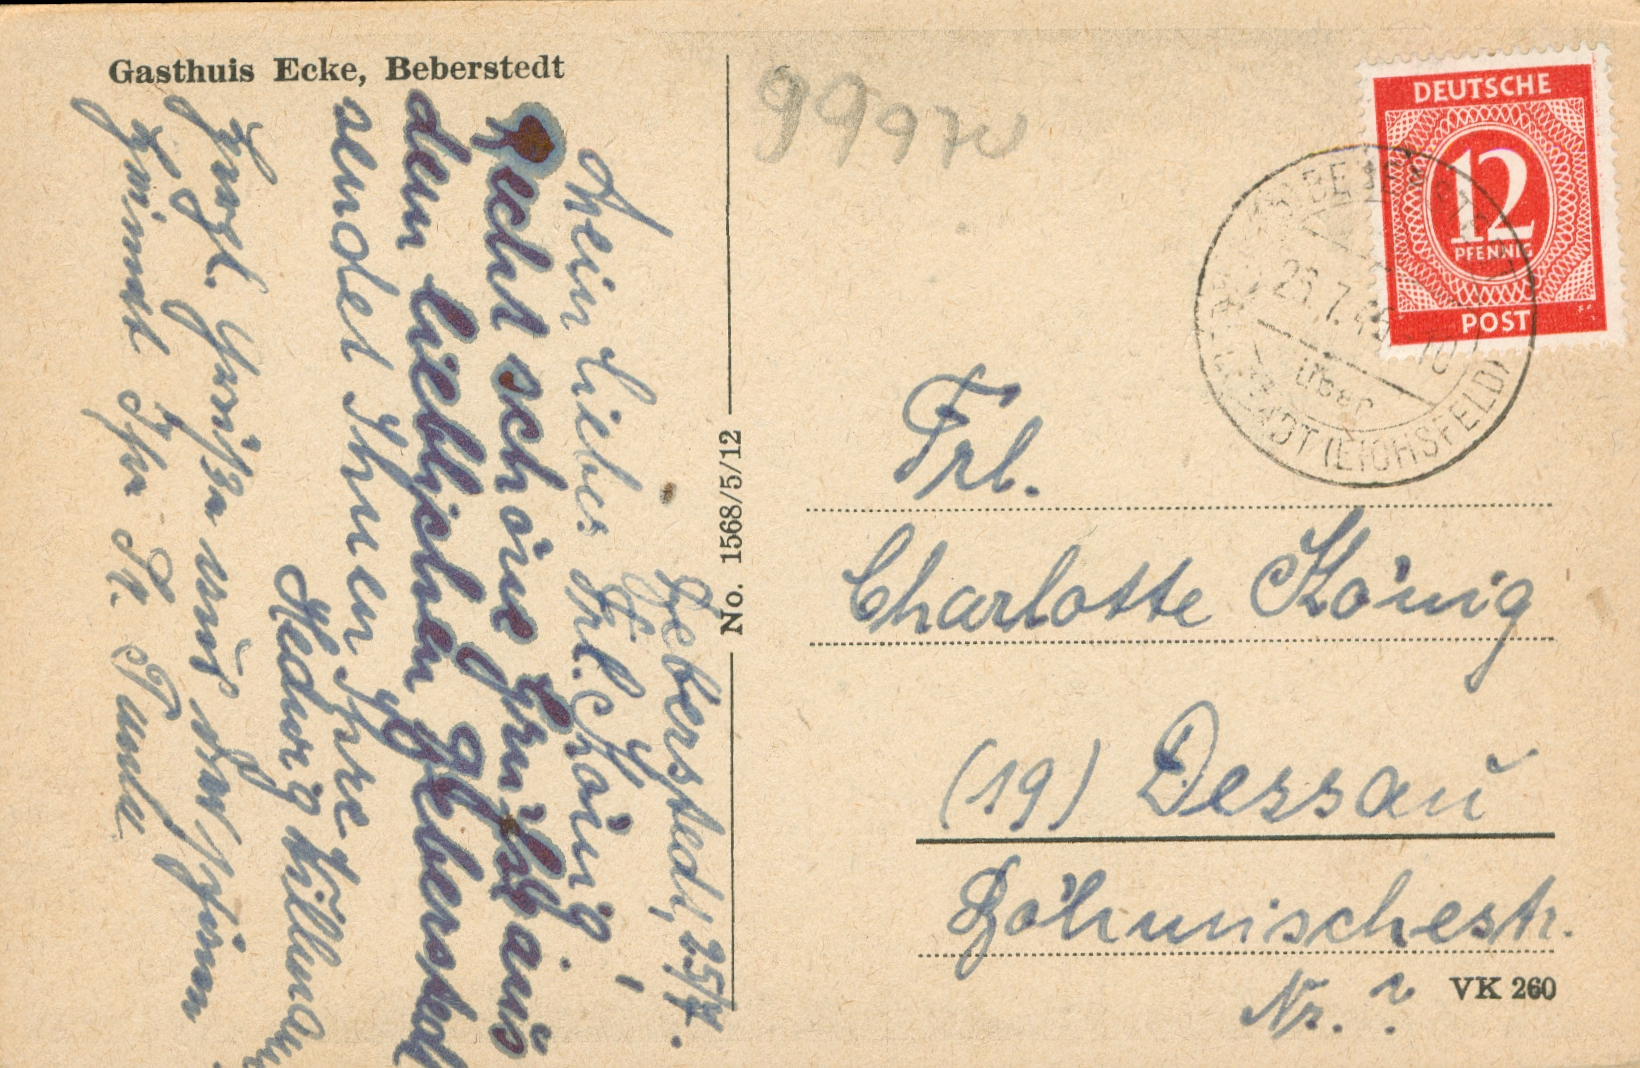 Gasthuis Ecke, Beberstedt
Beberstedt, 25/7.
Mein liebes Frl. König!
Recht schöne Grüße aus
dem lieblichen Beberstedt
sendet Ihnen Ihre
Hedwig
Herzl. Grüße und
Ihr Fr.
No. 1568/5/12
99970
DEUTSCHE
12
PFENNIG
POST
über
(EICHSFELD)
Frl.
Charlotte König
(19) Dessau
Böhmischestr.
Nr. ?
VK 260